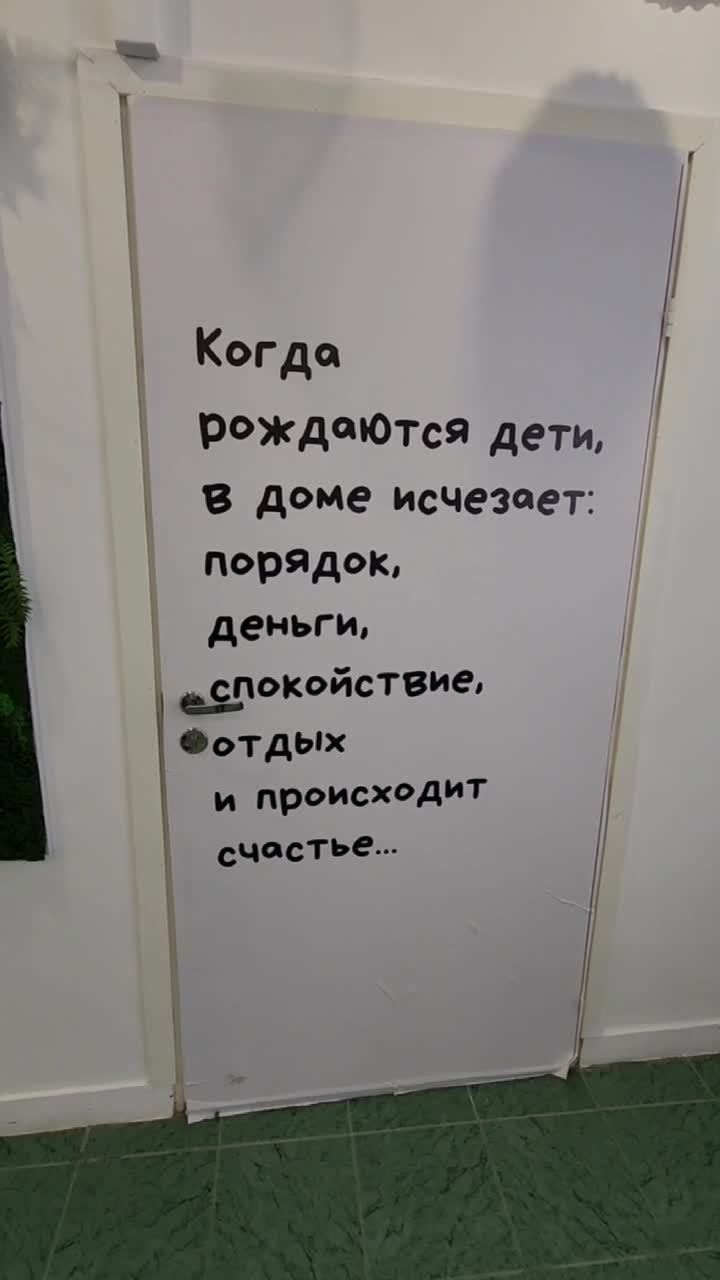 Когда
рождаются дети,
в доме исчезает:
порядок,
деньги,
спокойствие,
отдых
и происходит
счастье...